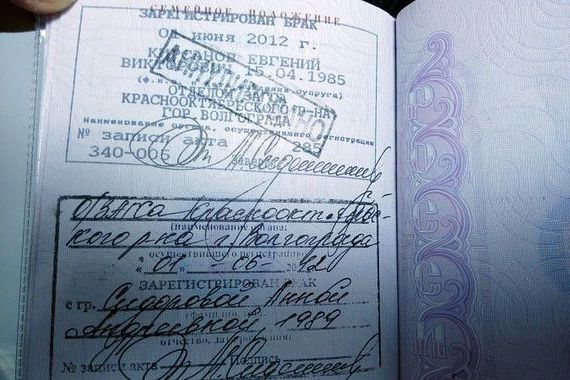 СЕМЕЙНОЕ ПОЛОЖЕНИЕ
ЗАРЕГИСТРИРОВАН БРАК
01 июня 2012 г.
ЕВГЕНИЙ
15.04.1985
ОТДЕЛОМ ЗАГСА
КРАСНООКТЯБРЬСКОГО Р-НА
ГОР. ВОЛГОГРАДА
Наименование органа, осуществившего регистрацию
№ записи акта 285
340-006 Заверил
О/ЗАГСа Краснооктябрьс-
кого р-на г. Волгограда
(наименование органа,
осуществившего регистрацию)
"01" 06 2012
ЗАРЕГИСТРИРОВАН БРАК
с гр. Сидоровой Анной
Андреевной, 1989
отчество, дата рождения)
№ записи акта Подпись